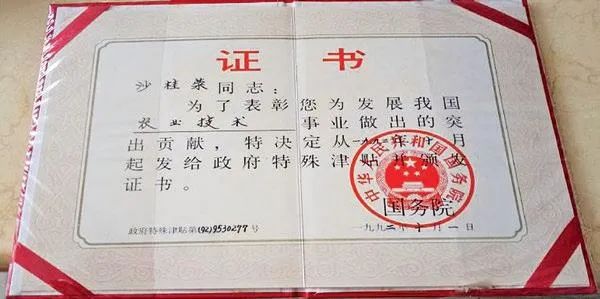 证书
沙桂荣同志：
为了表彰您为发展我国
农业技术事业做出的突
出贡献，特决定从一九九二年十月
起发给政府特殊津贴并颁发
证书。
中华人民共和国国务院
国务院
政府特殊津贴第(92)9530277号
一九九二年十月一日